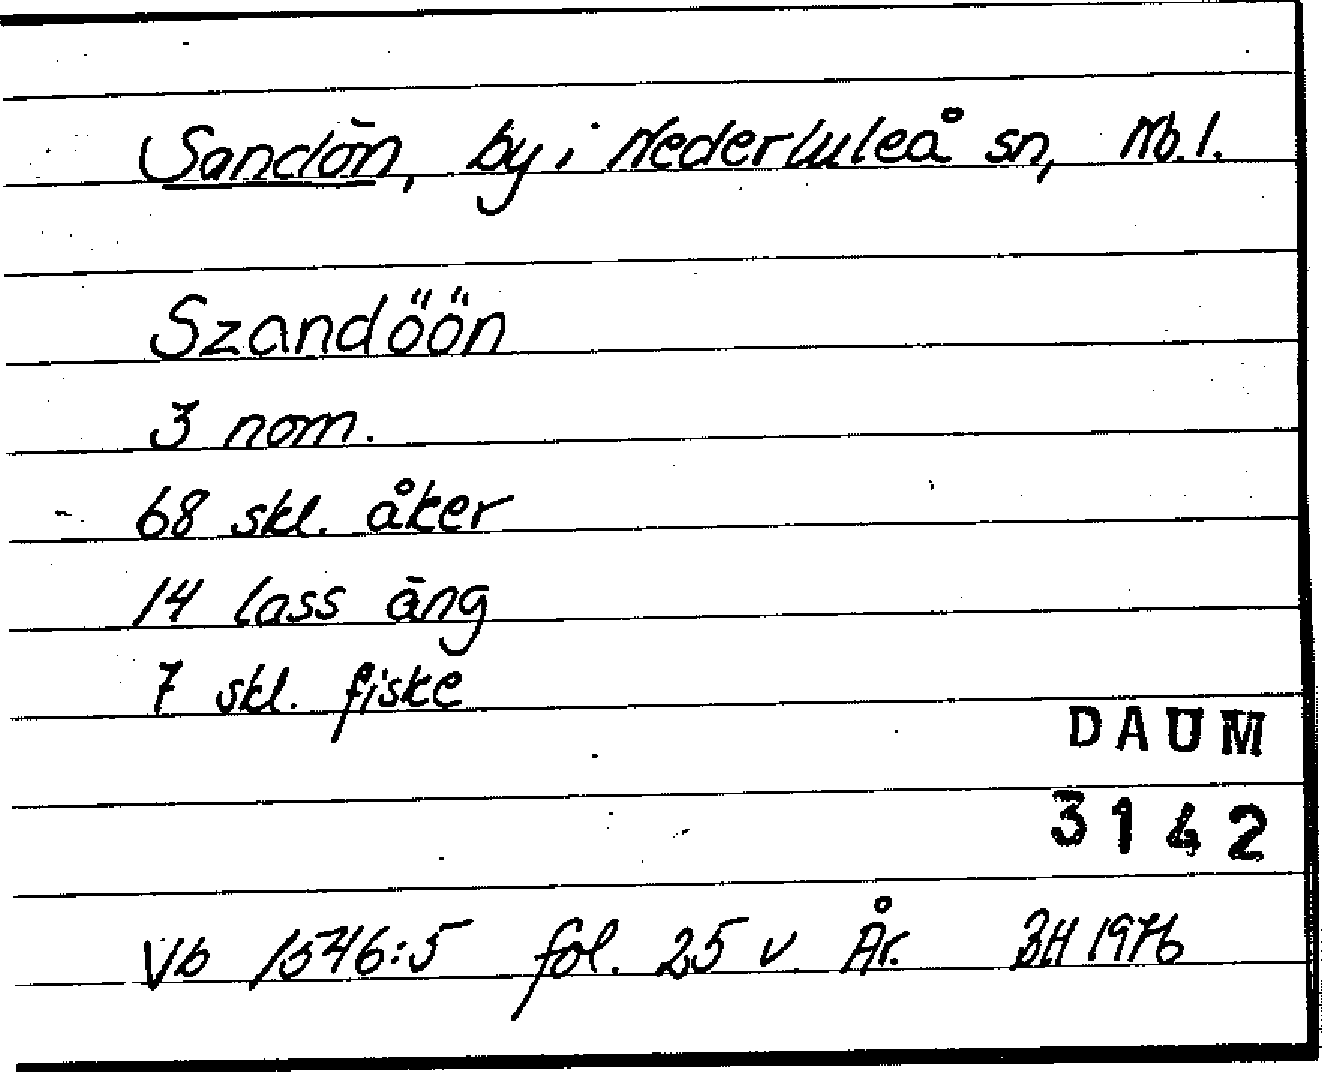 Sandön, by i Nederluleå sn, Nb.l.
Szandöön
3 nom.
68 skl. åker
14 lass äng
7 skl. fiske
DAUM
3142
Vb 1546:5 fol. 25 v. År. BH 1976